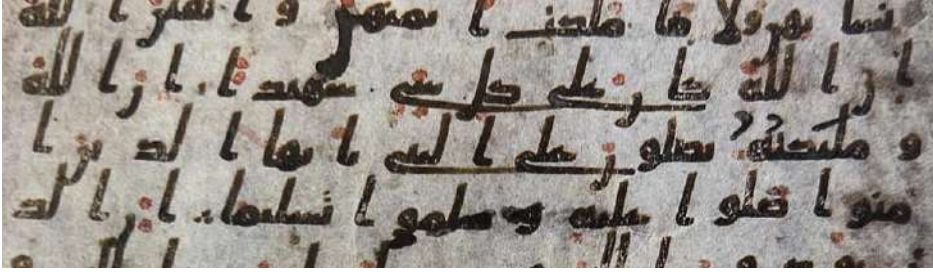 نسائهن ولا ما ملكت ايمنهن و اتقين الله
ان الله كان على كل شى شهيدا ان الله
و ملئكته يصلون على النبى يايها الذين ا
منوا صلوا عليه و سلموا تسليما ان الذ